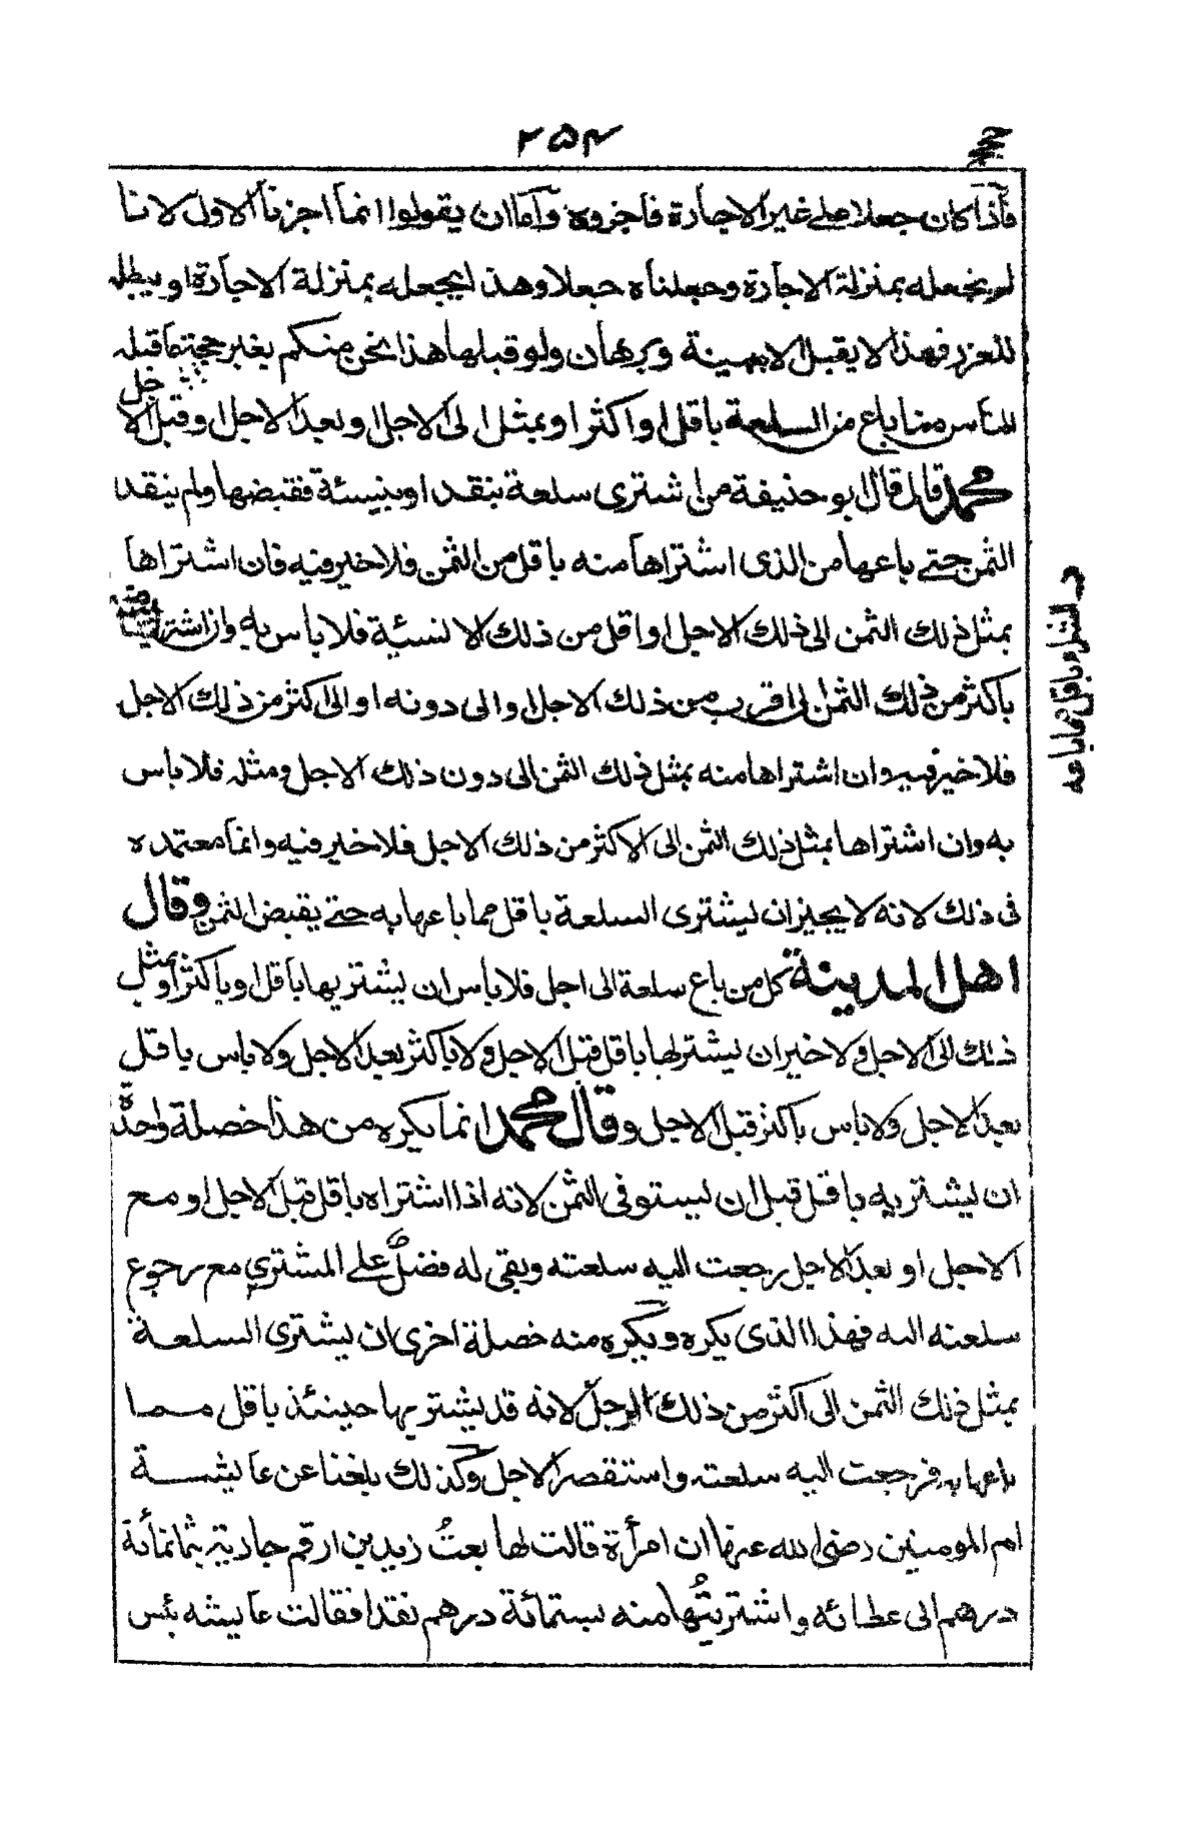 ٢٥٤
فاذا كان جعلا على غير الاجارة فاجزوه واما ان يقولوا انما اجزنا الاول لانا
لم نجعله بمنزلة الاجارة وجعلناه جعلا وهذا يجعله بمنزلة الاجارة او يبطله
للغرر فهذا لا يقبل الا ببينة وبرهان ولو قبلها هذا نحن منكم بغير حجة ما قبله
للناس منا باع من السلعة باقل او اكثر او بمثل الى الاجل او بعد الاجل او قبل الا
جل
محمد قال قال ابو حنيفة من اشترى سلعة بنقد او بنسئة فقبضها ولم ينقد
الثمن حتى باعها من الذى اشتراها منه باقل من الثمن فلا خير فيه فان اشتراها
بمثل ذلك الثمن الى ذلك الاجل او اقل من ذلك الا نسئة فلا باس به وان اشتراها
باكثر من ذلك الثمن الى اقرب من ذلك الاجل او الى دونه او الى اكثر من ذلك الاجل
فلا خير فيه وان اشتراها منه بمثل ذلك الثمن الى دون ذلك الاجل ومثله فلا باس
به وان اشتراها بمثل ذلك الثمن الى الاكثر من ذلك الاجل فلا خير فيه وانما معتمده
فى ذلك لانه لا يجيز ان يشترى السلعة باقل مما باعها به حتى يقبض الثمن وقال
اهل المدينة كل من باع سلعة الى اجل فلا باس ان يشتريها باقل او باكثر او بمثل
ذلك الى الاجل ولا خير ان يشترلها باقل قبل الاجل ولا باكثر بعد الاجل ولا باس باقل
بعد الاجل ولا باس باكثر قبل الاجل وقال محمد انما يكره من هذا خصلة واحدة
ان يشتريه باقل قبل ان يستوفى الثمن لانه اذا اشتراه باقل قبل الاجل او مع
الاجل او بعد الاجل رجعت اليه سلعته وبقى له فضل على المشترى مع رجوع
سلعته اليه فهذا الذى يكره ويكره منه خصلة اخرى ان يشترى السلعة
بمثل ذلك الثمن الى اكثر من ذلك الرجل لانه قد يشتريها حينئذ باقل مما
باعها به فرجعت اليه سلعته واستقصر الاجل وكذلك بلغنا عن عايشة
ام المومنين رضى الله عنها ان امرأة قالت لها بعت زيد بن ارقم جارية بثمانمائة
درهم الى عطائه واشتريتها منه بستمائة درهم نقدا فقالت عايشه بئس
الشراء باقل مما باعه